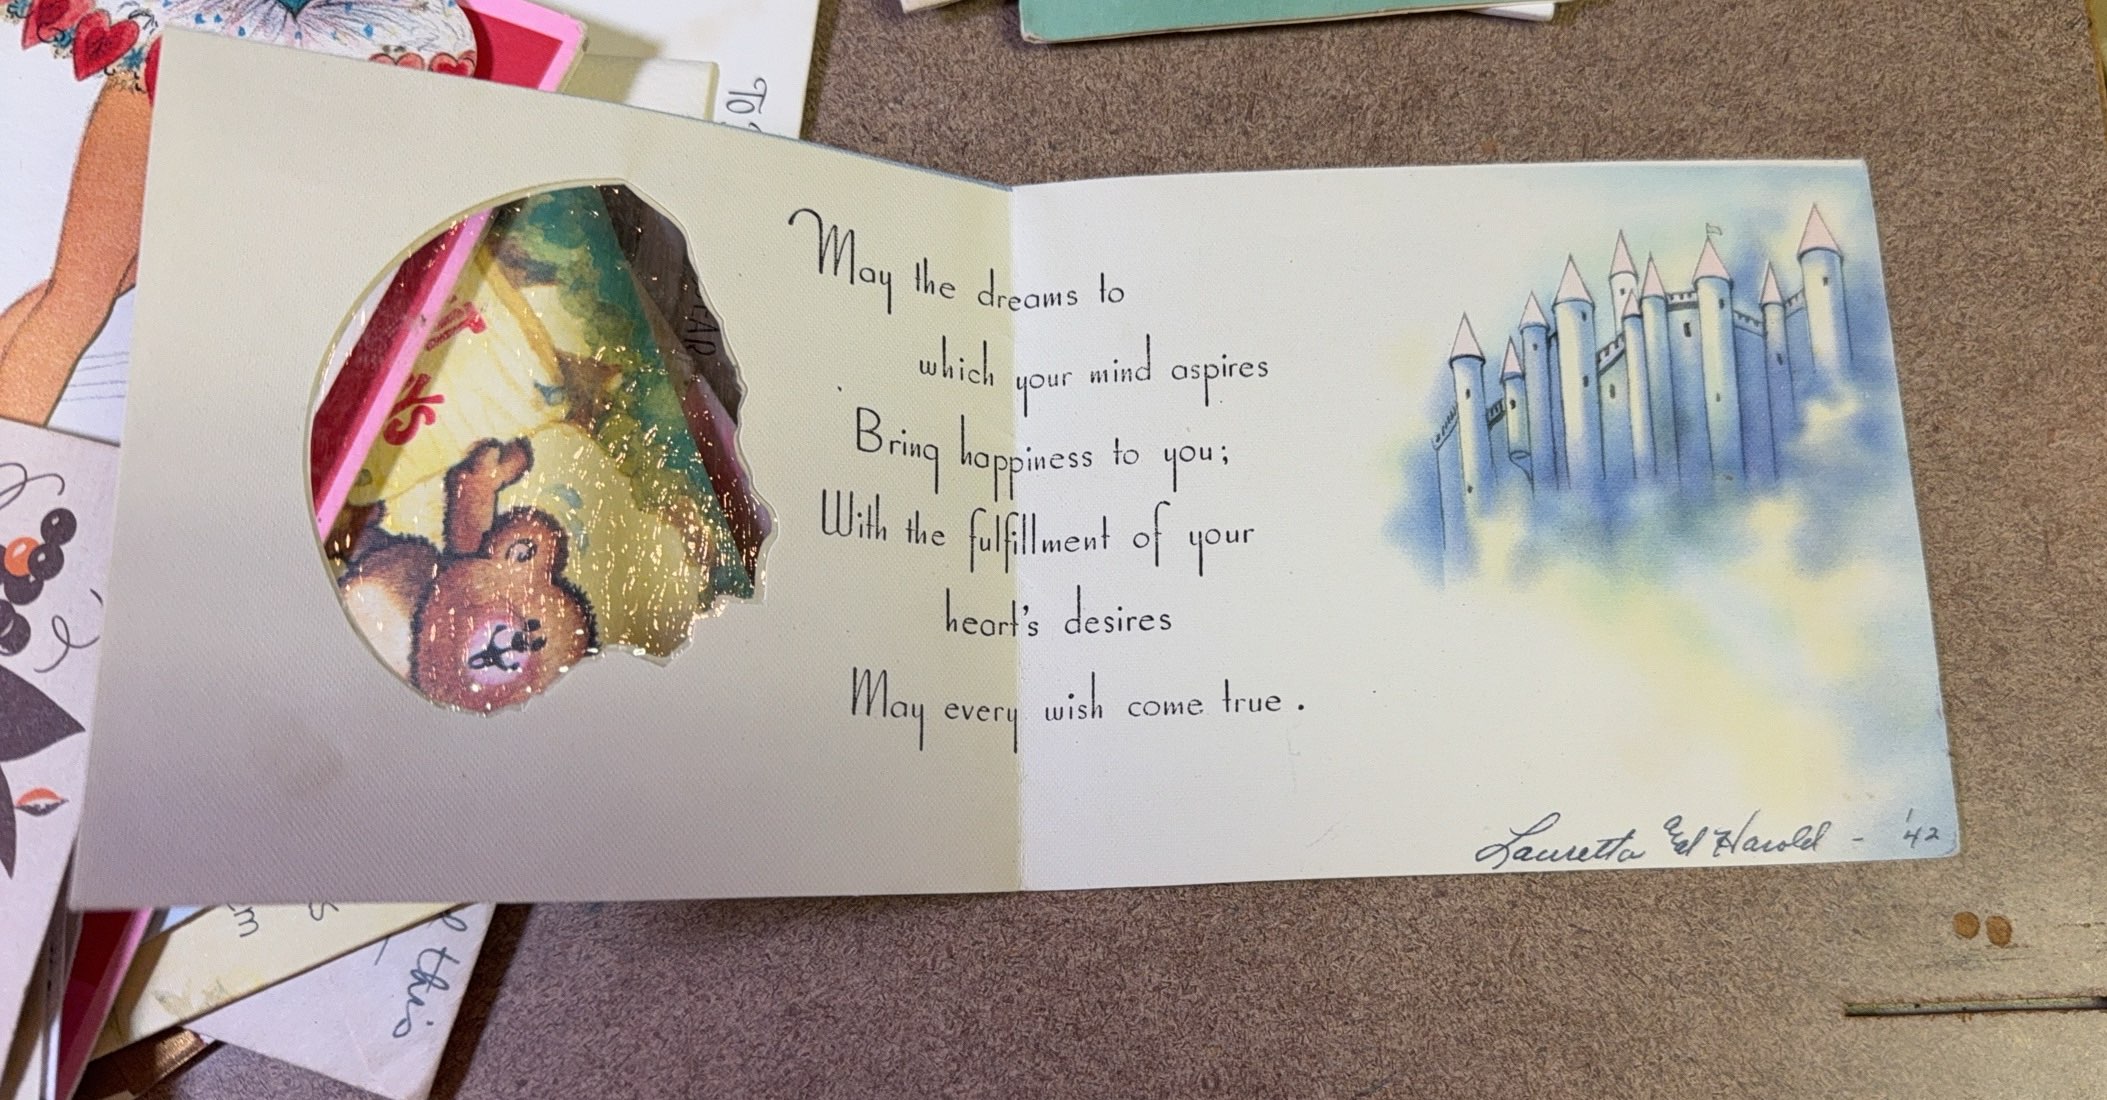 May the dreams to
which your mind aspires
Bring happiness to you;
With the fulfillment of your
heart's desires
May every wish come true.
Lauretta and Harold - '42
To
this